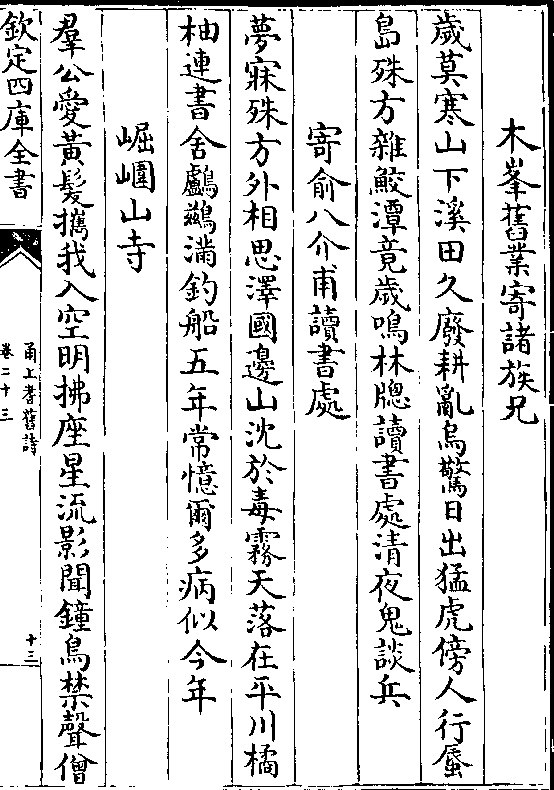 木峯舊業寄諸族兄
歲莫寒山下溪田久廢耕亂烏驚日出猛虎傍人行蜃
島殊方雜鮫潭竟歲鳴林牕讀書處清夜鬼談兵
寄俞八介甫讀書處
夢寐殊方外相思澤國邊山沈於毒霧天落在平川橘
柚連書舍鸕鷀滿釣船五年常憶爾多病似今年
崛𡇈山寺
羣公愛黃髮攜我入空明拂座星流影聞鐘鳥禁聲僧
欽定四庫全書
甬上耆舊詩
卷二十三
十三